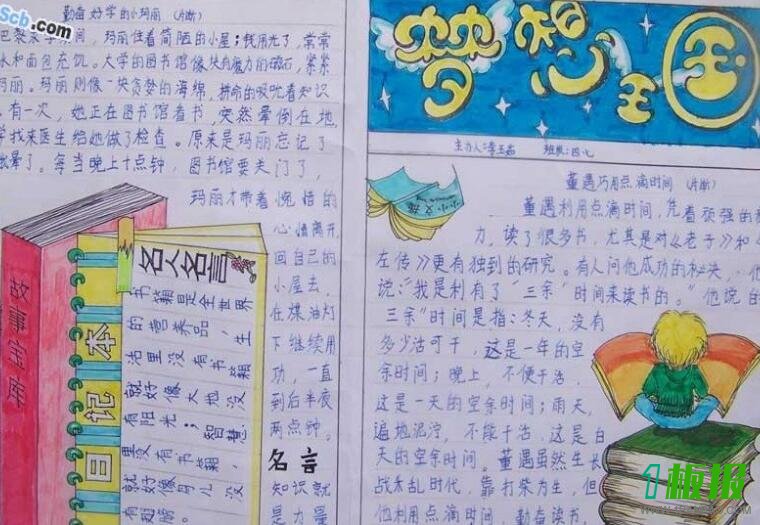 5cb.com
勤奋好学的小玛丽 （片断）
巴黎求学期间，玛丽住着简陋的小屋；钱用光了，常常
水和面包充饥。大学的图书馆像块有魔力的磁石，紧紧
玛丽。玛丽则像一块贪婪的海绵，拼命的吸吮着知识
。有一次，她正在图书馆看书，突然晕倒在地，
学找来医生给她做了检查。原来是玛丽忘记了
晕了。每当晚上十点钟，图书馆要关门了，
玛丽才带着惋惜的
心情离开，
回自己的
小屋去，
在煤油灯
下继续用
功，一直
到后半夜
两点钟。
名言
知识就
是力量
故事宝库
日记本
名人名言
书籍是全世界
的营养品，生
活里没有书籍
就好像大地没
有阳光；智慧
里没有书籍，
就好像鸟儿没
有翅膀。
梦想王国
主办人：李玉 班级：四·七
小小文摘
董遇巧用点滴时间（片断）
董遇利用点滴时间，凭着顽强的
力，读了很多书，尤其是对《老子》和《
左传》更有独到的研究。有人问他成功的秘决，他
说：“我是利有了“三余”时间来读书的。”他说的
三余”时间是指：冬天，没有
多少活可干，这是一年的空
余时间；晚上，不便干活，
这是一天的空余时间；雨天，
遍地泥泞，不能干活，这是白
天的空余时间。董遇虽然生长
战禾乱时代，靠打柴为生，但
他利用点滴时间，勤奋读书，
1板报